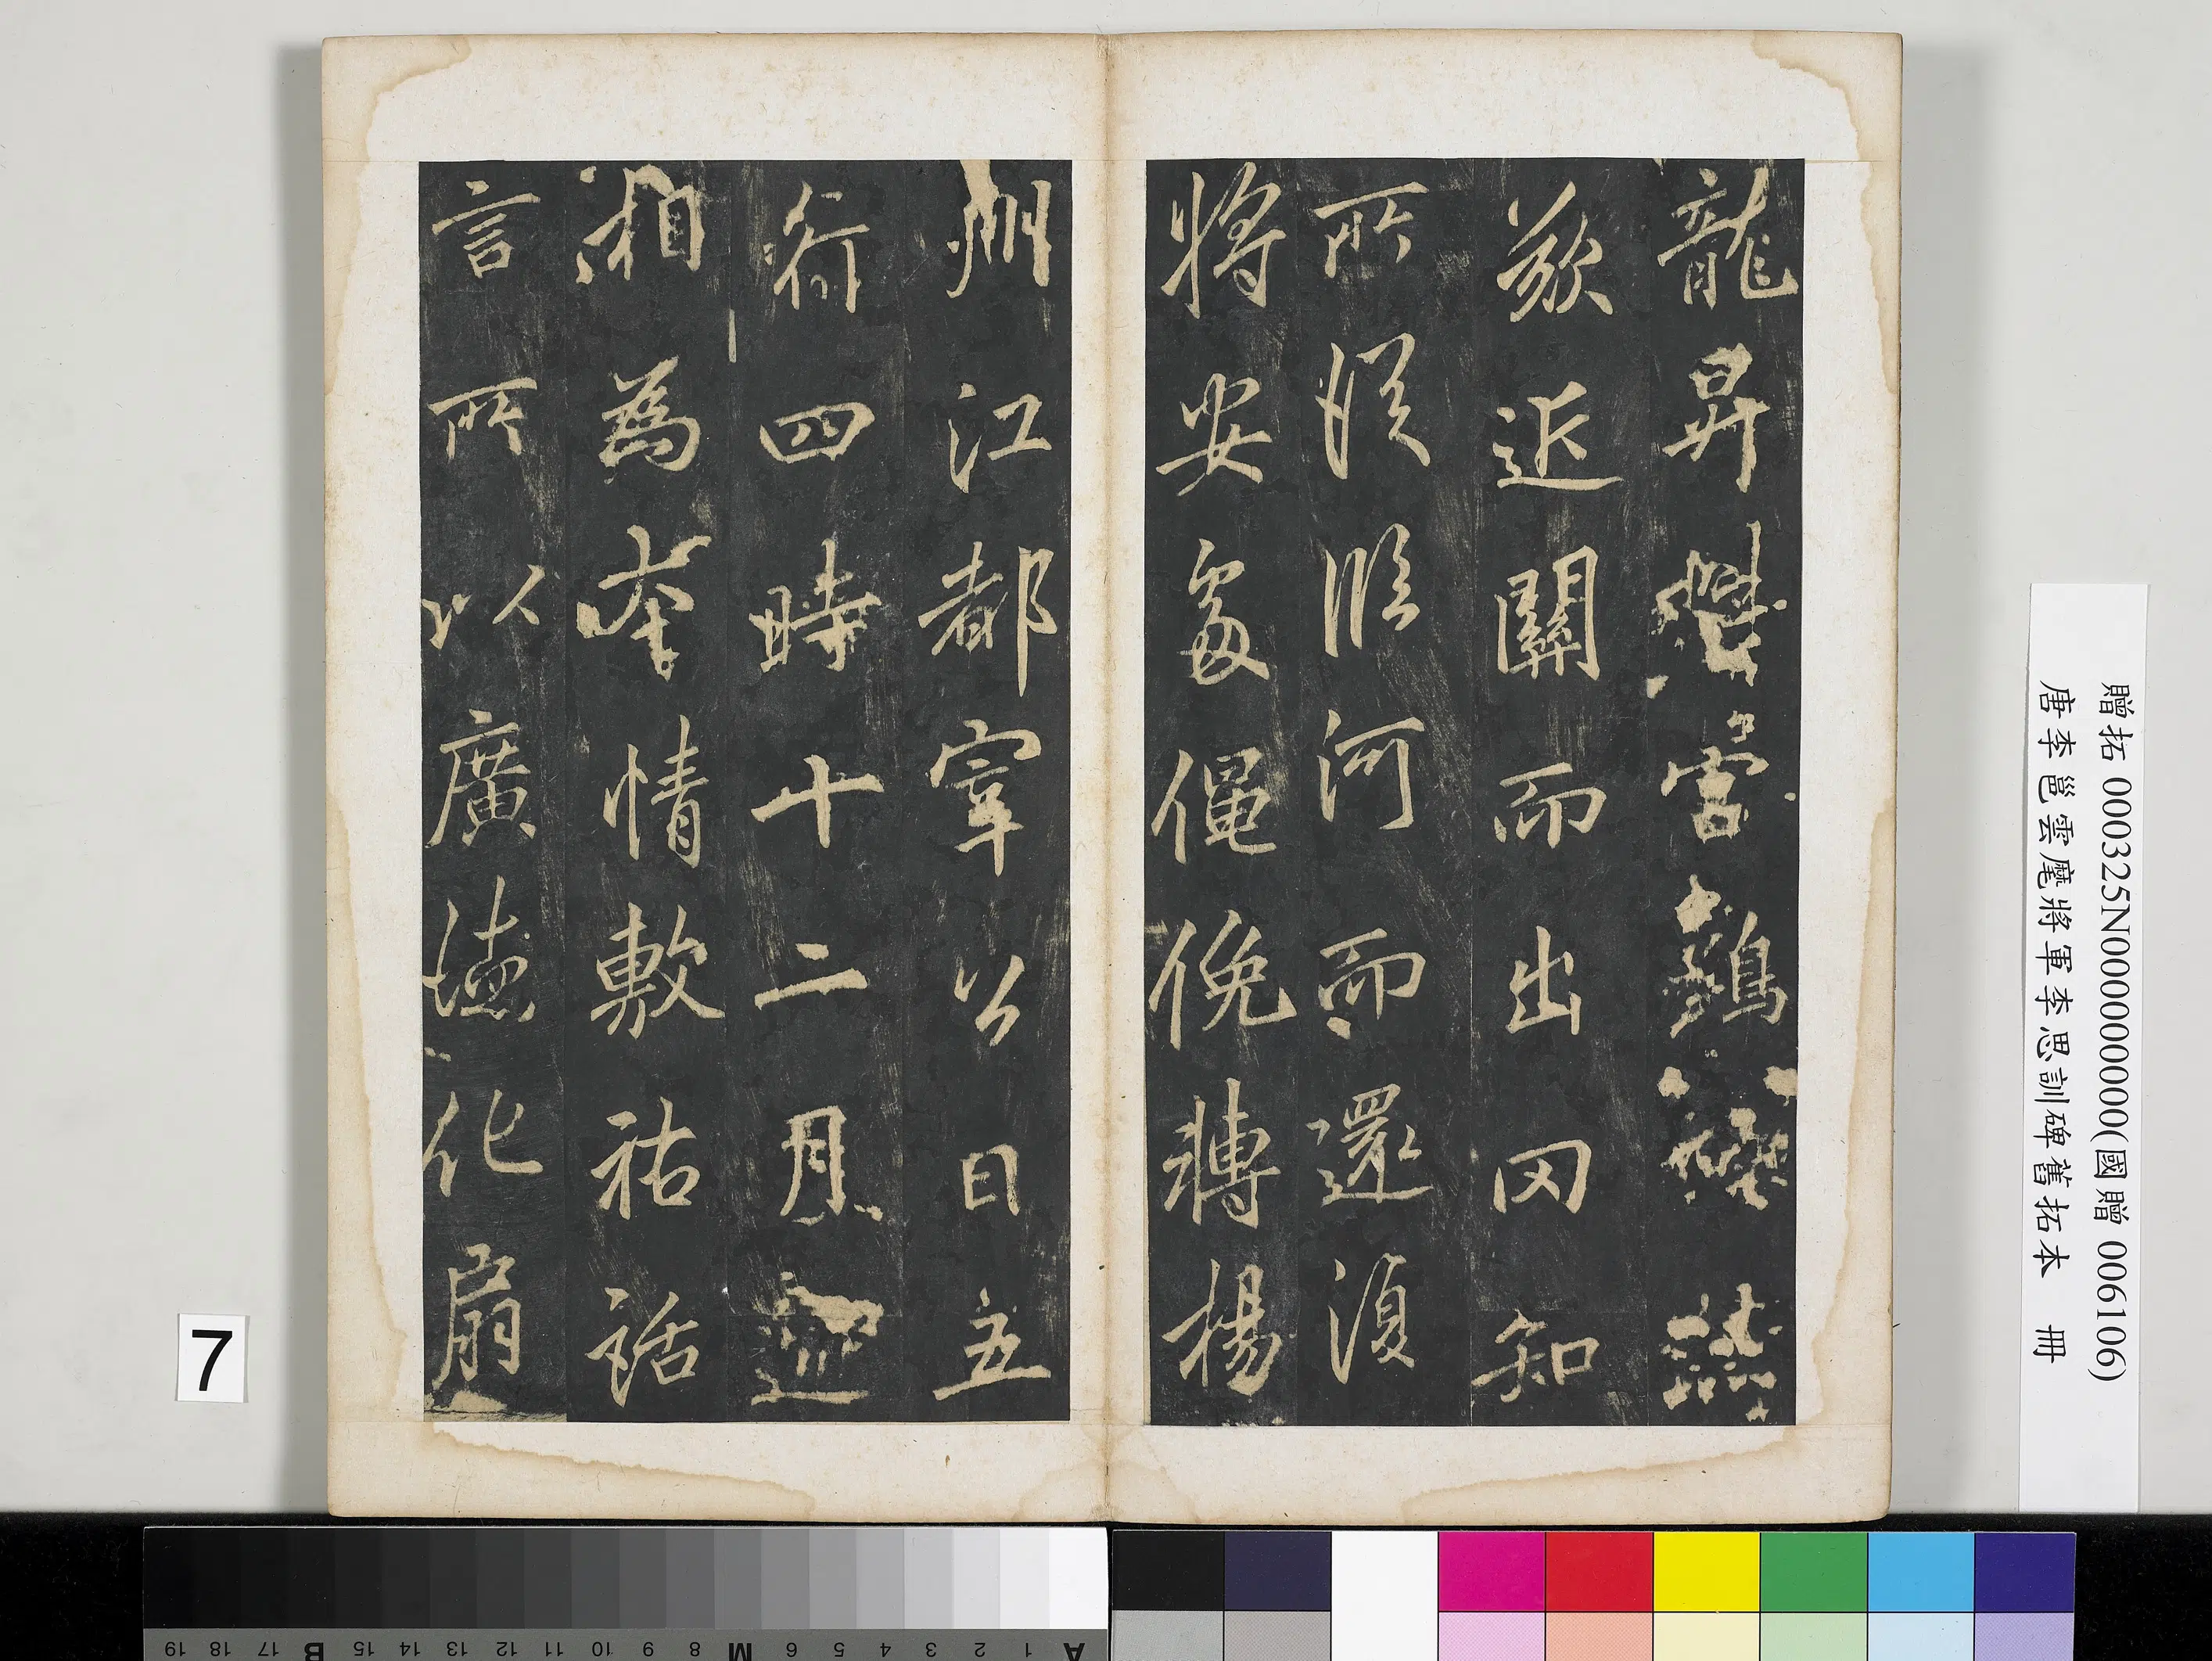 龍昇窘鷄
歎近關而出罔知
所從臨河而還須
將安處僶俛轉楊
州江都宰公日五
行四時十二月還
相為本情敷祐話
言所以廣德化扇
贈拓 000325N000000000(國贈 006106)
唐李邕雲麾將軍李思訓碑舊拓本 冊
7
19 18 17 B 15 14 13 12 11 10 9 8 M 6 5 4 3 2 1 A